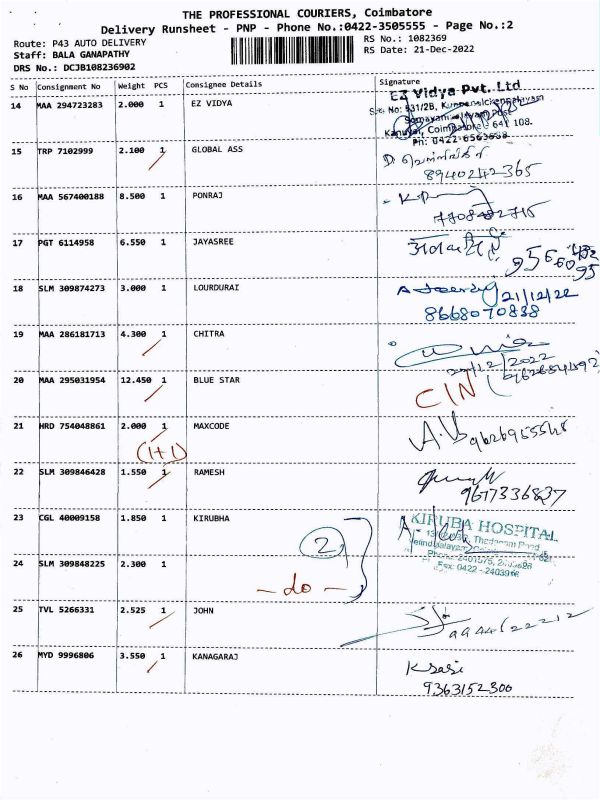 THE PROFESSIONAL COURIERS, Coimbatore
Delivery Runsheet - PNP - Phone No.:0422-3505555 - Page No.:2
Route: P43 AUTO DELIVERY
RS No.: 1082369
Staff: BALA GANAPATHY
RS Date: 21-Dec-2022
DRS No.: DCJB108236902
S No Consignment No Weight PCS Consignee Details Signature
14 MAA 294723283 2.000 1 EZ VIDYA
EZ Vidya Pvt. Ltd
Coimbatore - 641 108.
Ph: 0422-6563568
15 TRP 7102999 2.100 1 GLOBAL ASS
8940242365
16 MAA 567400188 8.500 1 PONRAJ
7708482715
17 PGT 6114958 6.550 1 JAYASREE
18 SLM 309874273 3.000 1 LOURDURAI
21/12/22
8668070838
19 MAA 286181713 4.300 1 CHITRA
20 MAA 295031954 12.450 1 BLUE STAR
CIN
21 HRD 754048861 2.000 1 MAXCODE
(1+1)
22 SLM 309846428 1.550 1 RAMESH
9677336837
23 CGL 40009158 1.850 1 KIRUBHA
KIRUBA HOSPITAL
2
24 SLM 309848225 2.300 1
- do -
25 TVL 5266331 2.525 1 JOHN
26 MYD 9996806 3.550 1 KANAGARAJ
K sasi
9363152300